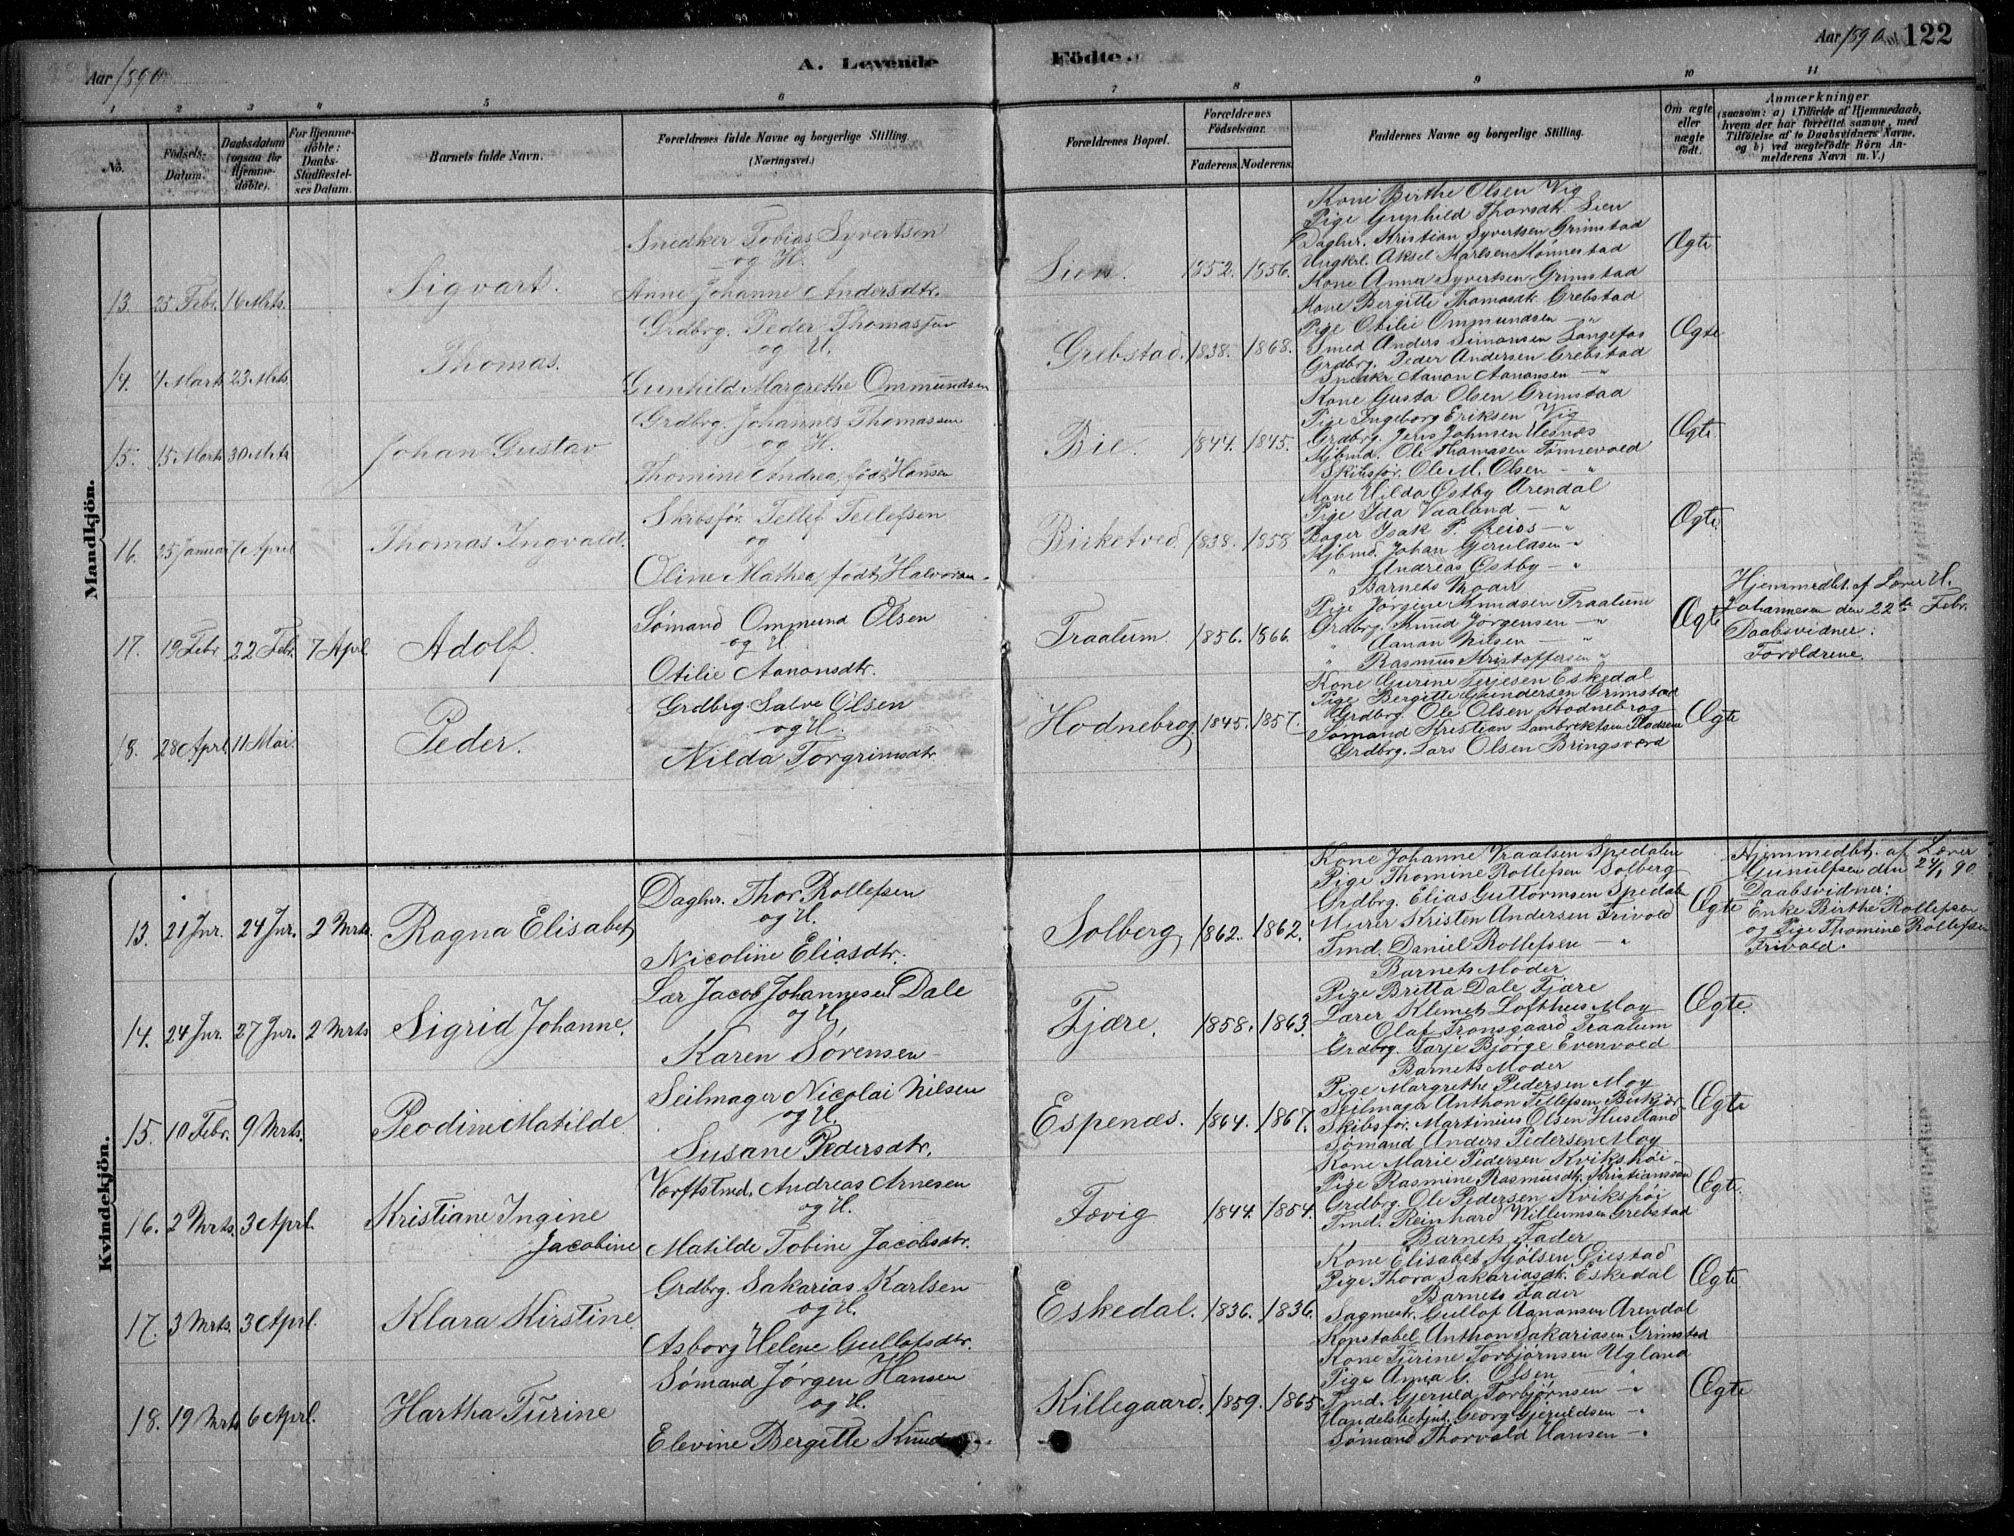 Aar 1890.
A. Levende
Födte.
Aar 1890.
122
1 2 3 4 5 6 7 8 9 10 11
No.
Födsels-
Datum.
Daabsdatum
(ogsaa for
Hjemme-
döbte).
For Hjemme-
döbte:
Daabs-
Stadfæstel-
ses Datum.
Barnets fulde Navn.
Forældrenes fulde Navne og borgerlige Stilling.
(Næringsvei.)
Forældrenes Bopæl.
Forældrenes
Födselsaar.
Faderens. Moderens.
Faddernes Navne og borgerlige Stilling.
Om ægte
eller
uægte
födt.
Anmærkninger
(saasom: a) i Tilfælde af Hjemmedaab,
hvem der har forrettet samme, med
Tilföielse af to Daabsvidners Navne,
og b) ved uægtefödte Börn An-
melderens Navn m. V.)
Mandkjön.
13. 25 Febr. 16 Mrts.
Sigvart.
Snedker Tobias Syvertsen
og H.
Anne Johanne Andersdtr.
Sien. 1852. 1856.
Kone Birthe Olsen Vig
Pige Gunhild Thorsdtr. Sien
Daglnr. Kristian Syvertsen Grimstad
Ungkrl. Aksel Karlsen Mønnestad
Kone Anna Syvertsen Grimstad
Ægte
14. 4 Marts 23 Mrts.
Thomas.
Grdbrg. Peder Thomassen
og H.
Gunhild Margrethe Ommundsen
Grebstad. 1838. 1868.
Kone Bergitte Thomasdtr. Grebstad
Pige Otilie Ommundsen — "
Smed Anders Simonsen Langefos
Grdbrg. Peder Andersen Grebstad
Snedkr. Aanon Aanonsen — "
Ægte
15. 15 Marts 30 Mrts
Johan Gustav
Grdbrg. Johannes Thomassen
og H.
Thomine Andrea, født Hansen
Bie. 1844. 1845.
Kone Gusta Olsen Grimstad
Pige Ingeborg Eriksen Vig
Grdbrg. Jens Johnsen Vesnæs
Kjbmd. Ole Thomassen Tønnevold
Skibsfør. Ole M. Olsen — "
Ægte
16. 25 Januar 7 April
Thomas Ingvald.
Skibsfør. Tellef Tellefsen
og
Oline Mathea, født Halvorsen.
Birketved. 1838. 1858
Kone Hilda Østby Arendal
Pige Ida Vaaland — "
Bager Isak P. Reios — "
Kjbmd. Johan Gjeruldsen — "
" Andreas Østby — "
Ægte
17. 19 Febr 22 Feb. 7 Apl.
Adolf.
Sømand Ommund Olsen
og H.
Otilie Aanonsdtr.
Traalum 1856. 1866.
Barnets Moder
Pige Jørgine Knudsen Traalum
Grdbrg. Knud Jørgensen — "
" Aanan Nilsen — "
" Rasmus Kristoffersen "
Ægte
Hjemmedbt. af Lærer H.
Johannesen den 22de Febr.
Daabsvidner:
Forældrene.
18. 28 Aprl. 11 Mai.
Peder.
Grdbrg. Salve Olsen
og H.
Nilda Torgrimsdtr.
Hodnebrog 1845. 1857.
Kone Gurine Terjesen Eskedal
Pige Bergitte Gundersen Grimstad
Grdbrg. Ole Olsen Hodnebrog
Sømand Kristian Lambrektsen
Grdbrg. Lars Olsen Bringsværd
Ægte
Kvindekjön.
13. 21 Jnr. 24 Jnr. 2 Mrts.
Ragna Elisabet
Daglnr. Thor Rollefsen
og H.
Nicoline Eliasdtr.
Solberg 1862. 1862.
Kone Johanne Vraalsen Spedalen
Pige Thomine Rollefsen Solberg
Grdbrg. Elias Guttormsen Spedalen
Murer Kristen Andersen Frivold
Tmd. Daniel Rollefsen — "
Ægte
Hjemmedbt. af Lærer
Gunulfsen den 24/1 90.
Daabsvidner:
Enke Birthe Rollefsen
og Pige Thomine Rollefsen
Frivold.
14. 24 Jnr. 27 Jnr. 2 Mrts
Sigrid Johanne.
Lær Jacob Johannesen Dale
og H.
Karen Sørensen
Fjære. 1858. 1863.
Barnets Moder
Pige Britta Dale Fjære
Lærer Klemet Lofthus Moy
" Olaf Tronsgaard Traalum
Grdbrg. Tarje Bjørge Evenvold
Ægte.
15. 10 Febr. 9 Mrts.
Peodine Matilde
Seilmager Nicolai Nilsen
og H.
Susane Pedersdtr.
Espenæs. 1864. 1867.
Barnets Moder
Pige Margrethe Pedersen Moy
Seilmager Anthon Tellefsen
Skibsfør. Martinius Olsen Huseland
Sømand Anders Pedersen Moy
Ægte
16. 2 Mrts. 3 Aprl.
Kristiane Ingine
Jacobine
Værftstmd. Andreas Arnesen
og H.
Matilde Tobine Jacobsdtr.
Fævig 1844. 1854.
Kone Marie Pedersen Kvikshøi
Pige Rasmine Rasmusdtr. Kristianssand
Grdbrg. Ole Pedersen Kvikshøi
Tmd. Reinhard Villumsen Grebstad
Barnets Fader
Ægte.
17. 3 Mrts. 3 Aprl.
Klara Kirstine.
Grdbrg. Sakarias Karlsen
og H.
Asborg Helene Gullofsdtr.
Eskedal. 1836. 1836.
Kone Elisabet Mjølsen Giestad
Pige Thora Sakariasdtr. Eskedal
Barnets Fader
Sagmestr. Gullof Aanonsen Arendal
Konstabel Anthon Sakariasen Grimstad
Ægte
18. 19 Mrts 6 Aprl.
Hartha Turine
Sømand Jørgen Hansen
og H.
Elevine Bergitte
Killegaard. 1859. 1865
Kone Turine Torbjørnsen Ugland
Pige Anna G. Olsen "
Tmd. Gjeruld Torbjørnsen — "
Handelsbetjnt. Georg Gjeruldsen — "
Sømand Thorvald Hansen — "
Ægte